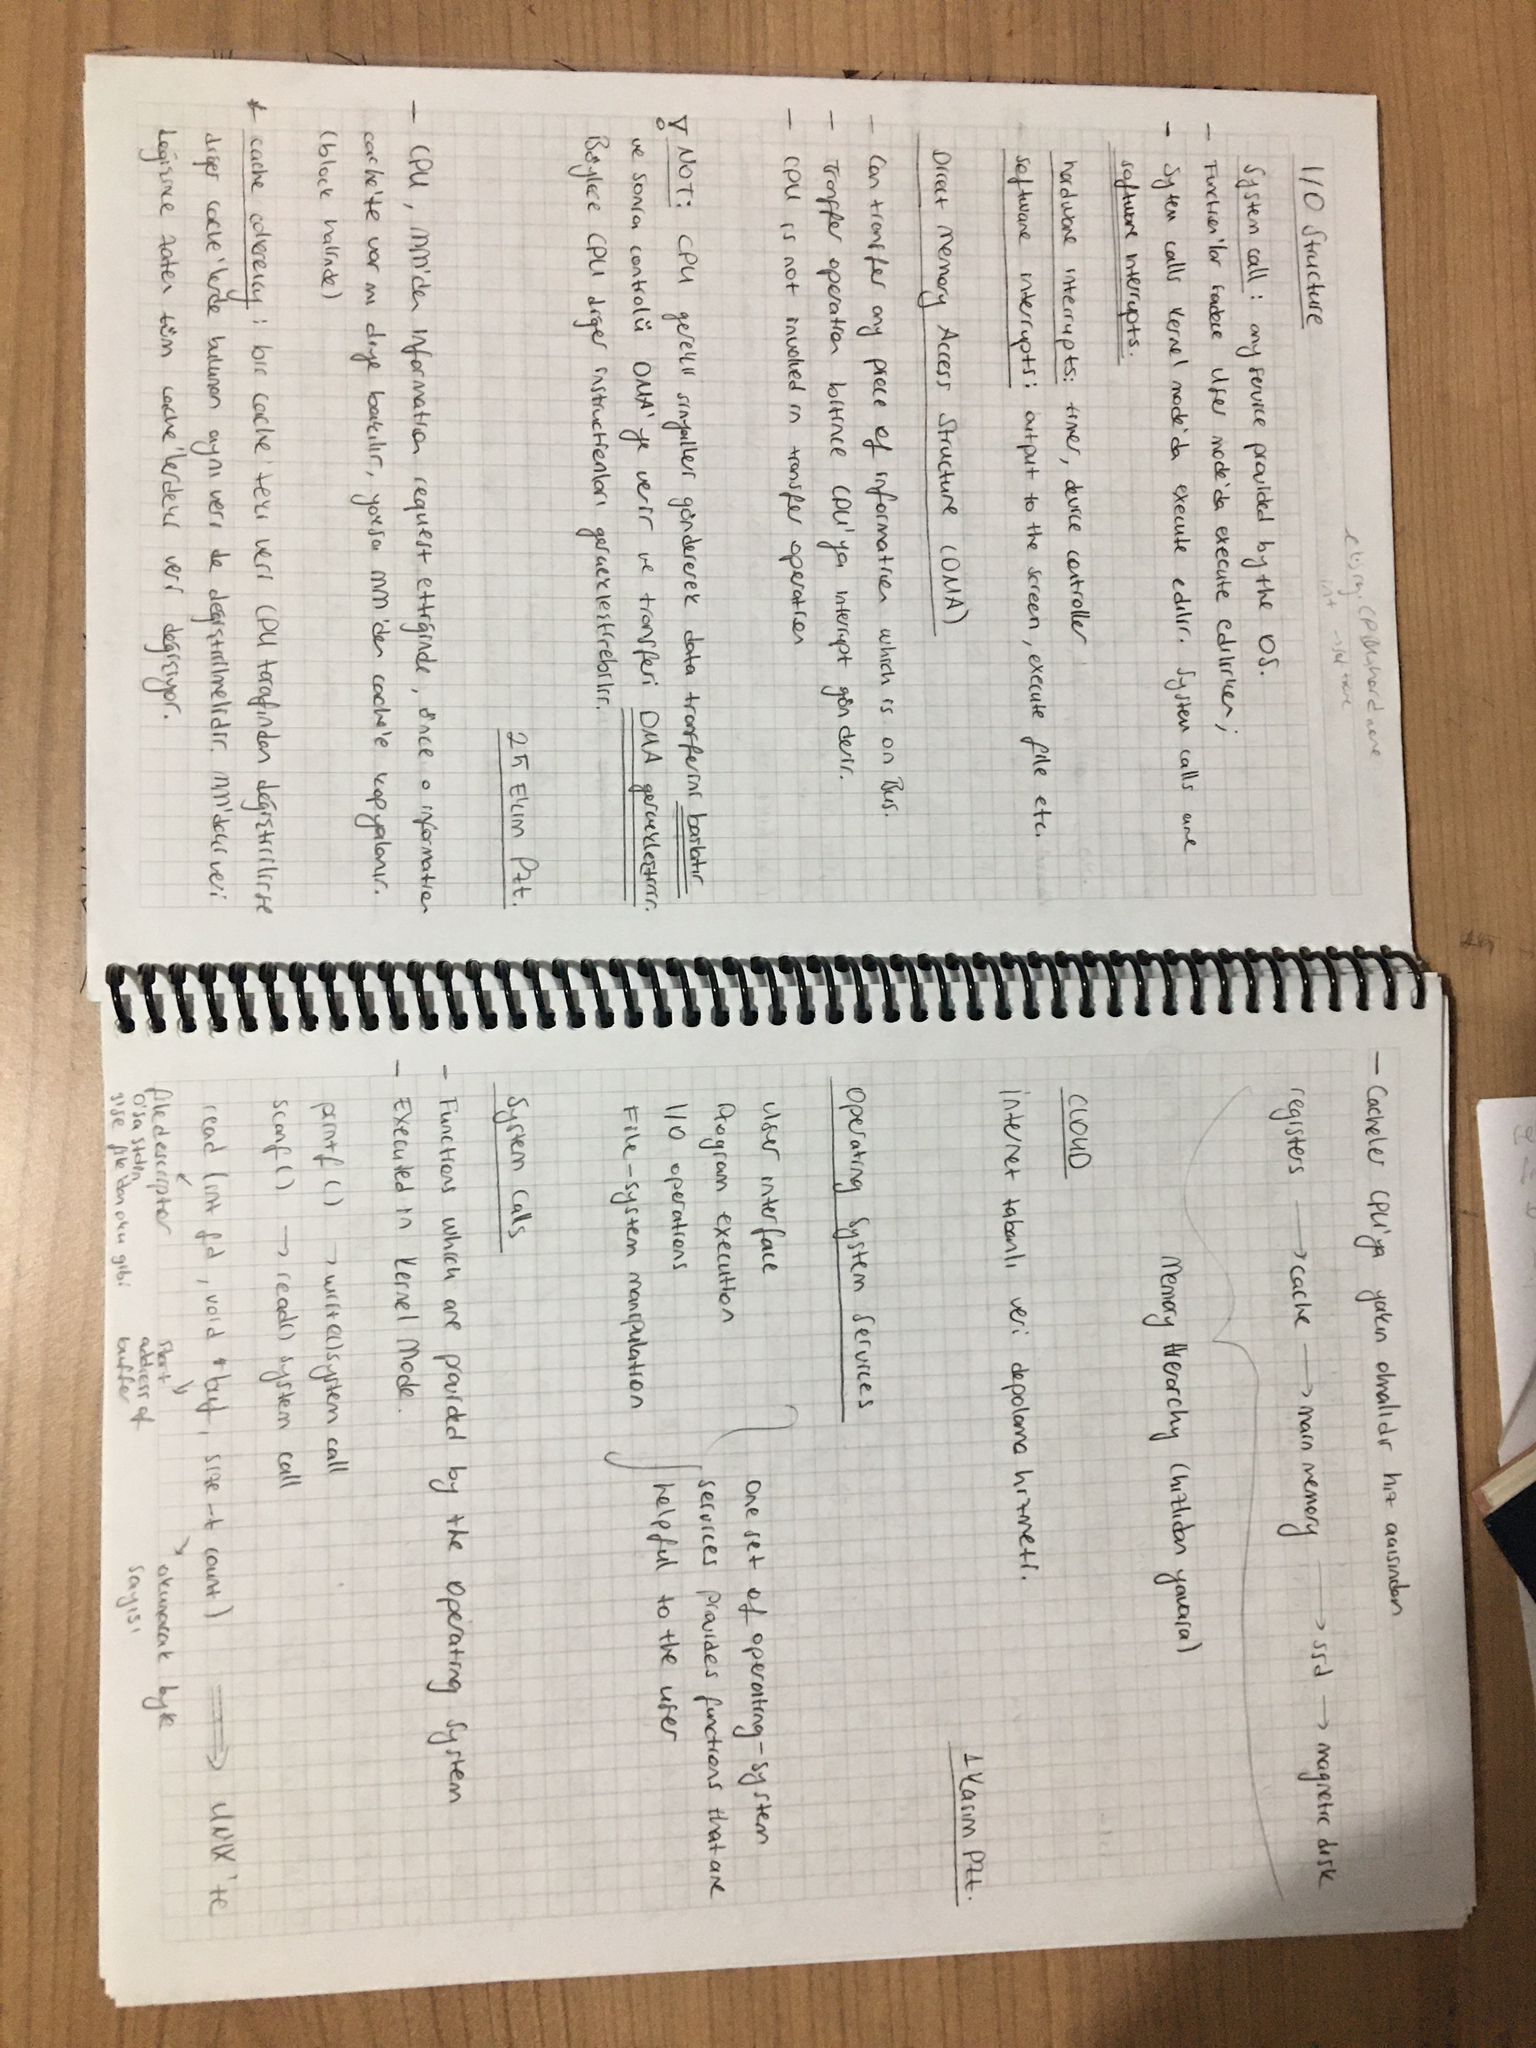 I/O Structure
System call : any service provided by the OS.
- Function'lar sadece User mode'da execute edilirken;
- System calls Kernel mode'da execute edilir. System calls are
software interrupts.
hardware interrupts: timer, device controller
software interrupts: output to the screen, execute file etc.
Direct Memory Access Structure (DMA)
- Can transfer any piece of information which is on Bus.
- Transfer operation bitince CPU'ya interrupt gönderir.
- CPU is not involved in transfer operation
NOT: CPU gerekli sinyaller göndererek data transferini başlatır
ve sonra controlü DMA'ye verir ve transferi DMA gerçekleştirir.
Böylece CPU diğer instructionları gerçekleştirebilir.
25 Ekim Pzt.
- CPU, MM'den information request ettiğinde, önce o information
cache'te var mı diye bakılır, yoksa MM'den cache'e kopyalanır.
(block halinde)
* cache coherency : bir cache'teki veri CPU tarafından değiştirilirse
diğer cache'lerde bulunan aynı veri de değiştirilmelidir. MM'deki veri
değişince zaten tüm cache'lerdeki veri değişiyor.
- Cacheler CPU'ya yakın olmalıdır hız açısından
registers → cache → main memory → ssd → magnetic disk
Memory Hierarchy (hızlıdan yavaşa)
CLOUD
internet tabanlı veri depolama hizmeti.
1 Kasım Pzt.
Operating System Services
User interface
Program execution
I/O operations
File-System manipulation
One set of operating-system
services provides functions that are
helpful to the user
System Calls
- Functions which are provided by the operating system
- Executed in Kernel Mode.
printf() → write() system call
scanf() → read() system call
read (int fd, void *buf, size-t count) ⟹ UNIX'te
file descriptor
0'sa stdin
1'se file'dan oku gibi
start
address of
buffer
okunacak byte
sayısı